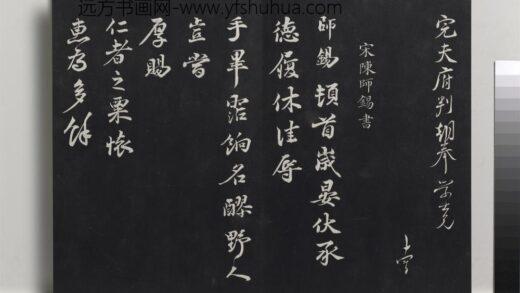 远方书画网-www.yfshuhua.com
完夫府判朝奉学士兄
士官
宋陳師錫書
師錫頓首歲晏伏承
德履休佳辱
手畢寵餉名醪野人
豈嘗
厚賜
仁者之粟懷
惠為多餘